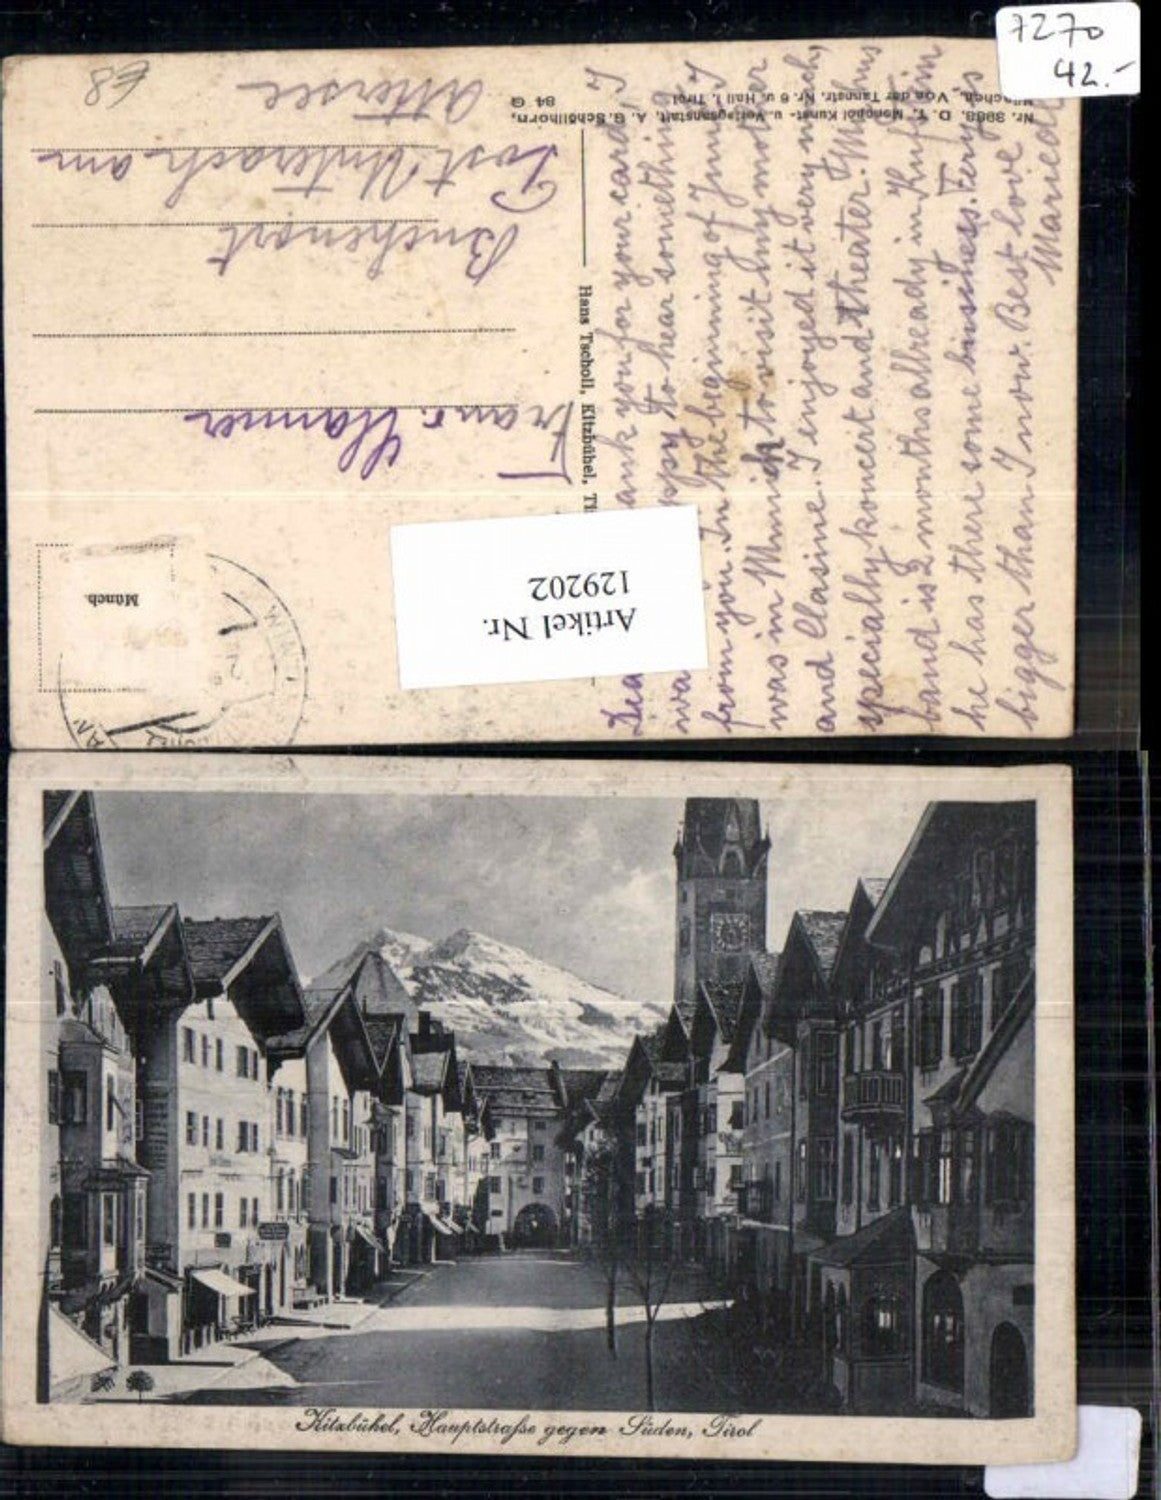 7270
42.-
68
Nr. 3988. D. T. Monopol Kunst- u. Verlagsanstalt, A. G. Schöllhorn,
München, Von der Tannstr. Nr. 6 u. Hall i. Tirol 84 G
Hans Tscholl, Kitzbühel,
Münch.
Buchenort
Post Unterach am
Attersee
Artikel Nr.
129202
ank you for your card, I
ppy to hear something
from you. In the beginning of June I
was in Munich to visit my mother
and Clasine. I enjoyed it very much,
specially koncert and theater. My hus
band is 2 months allready in Kufstein
he has there some bussiness. Fery
bigger than I now. Best love
Kitzbühel, Hauptstraße gegen Süden, Tirol